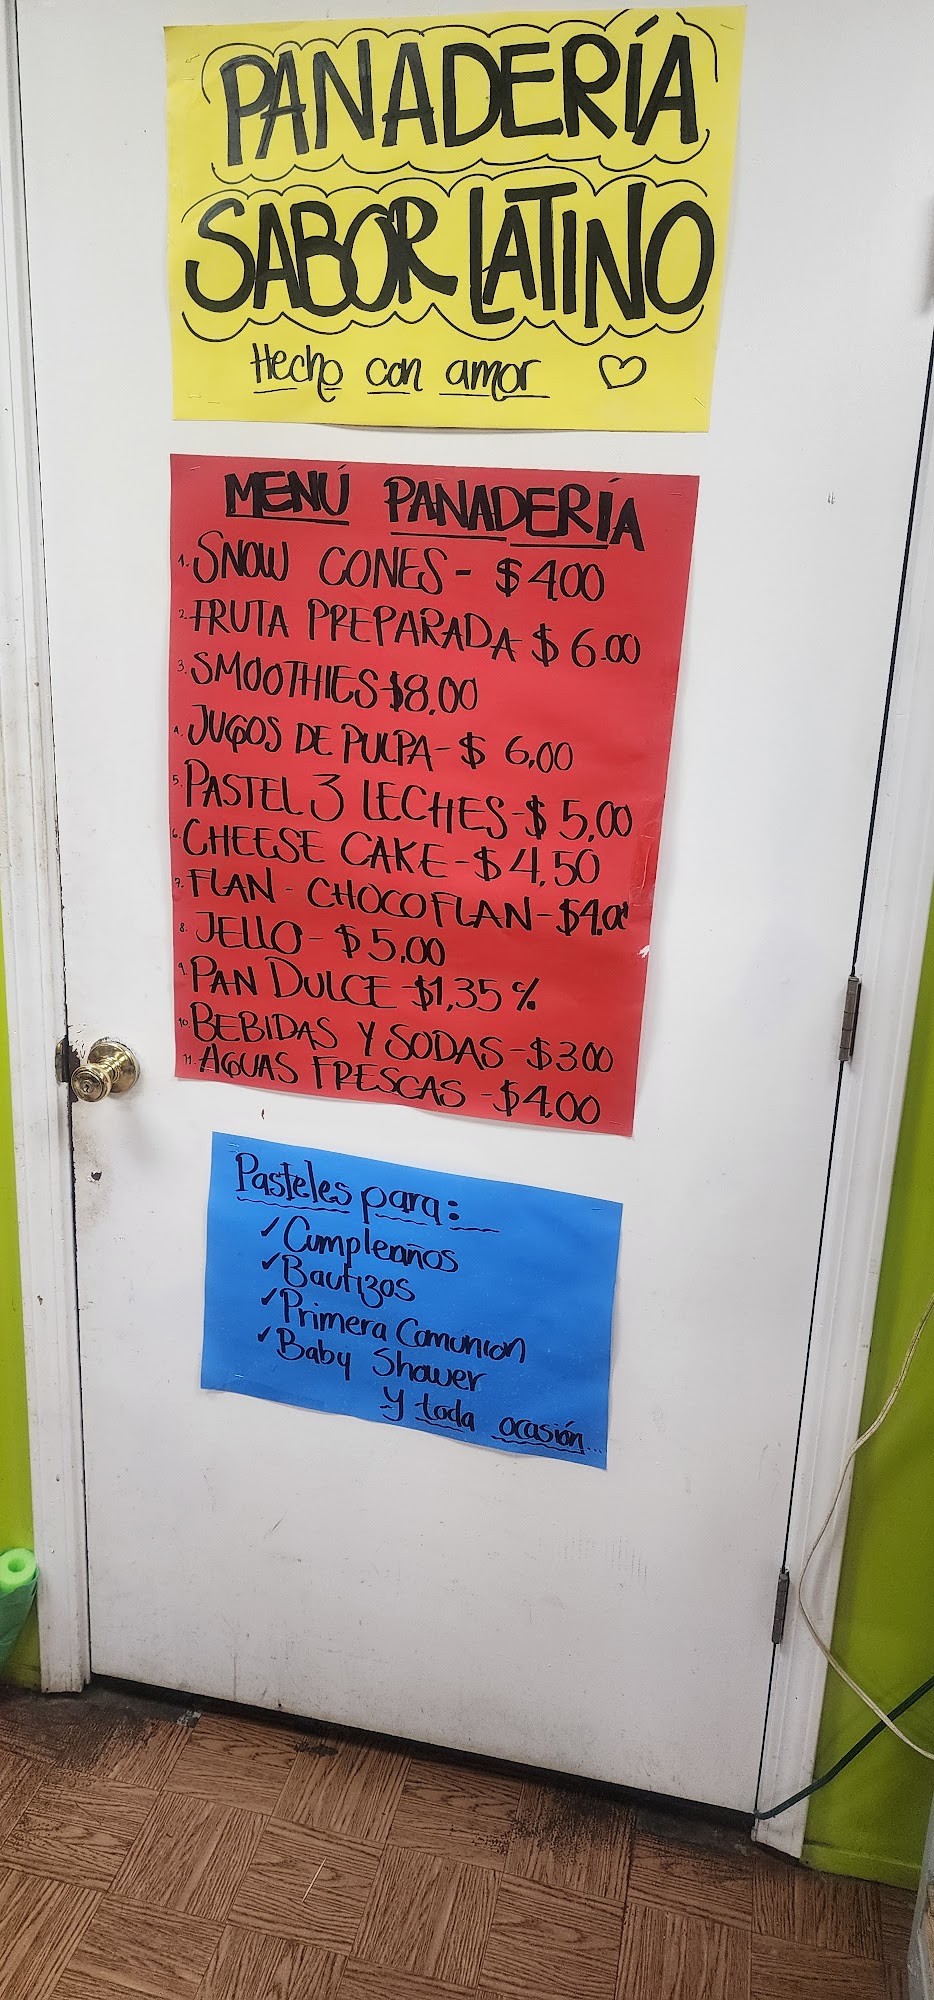 PANADERÍA
SABOR LATINO
Hecho con amor
MENÚ PANADERÍA
1. SNOW CONES - $4.00
2. FRUTA PREPARADA $ 6.00
3. SMOOTHIES-$8,00
4. JUGOS DE PULPA - $ 6,00
5. PASTEL 3 LECHES-$ 5,00
6. CHEESE CAKE - $ 4,50
7. FLAN - CHOCOFLAN - $4.00
8. JELLO - $ 5.00
9. PAN DULCE - $1,35 c/
10. BEBIDAS Y SODAS - $3.00
11. AGUAS FRESCAS - $4.00
Pasteles para:
✓ Cumpleaños
✓ Bautizos
✓ Primera Comunion
✓ Baby Shower
y toda ocasión...